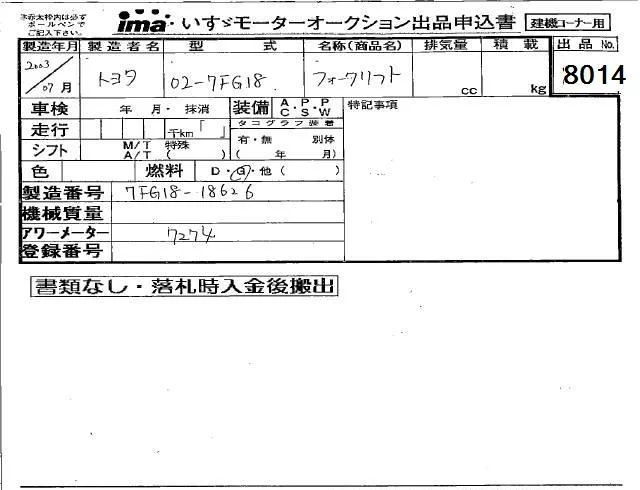 ※赤太枠内は必ず
ボールペンで
ご記入下さい。
ima いすゞモーターオークション出品申込書 建機コーナー用
製造年月 製造者名 型式 名称(商品名) 排気量 積載 出品No.
2003/07月 トヨタ 02-7FG18 フォークリフト cc kg 8014
車検 年 月・抹消 装備 A/C P/S P/W 特記事項
走行 千km「 」 タコグラフ装着
シフト M/T A/T 特殊( ) 有・無 別体 ( 年 月)
色 燃料 D・G・他( )
製造番号 7FG18-18626
機械質量
アワーメーター 7274
登録番号
書類なし・落札時入金後搬出